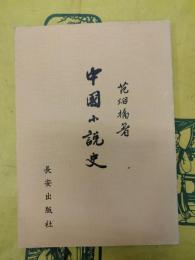 范烟橋著
中國小說史
長安出版社